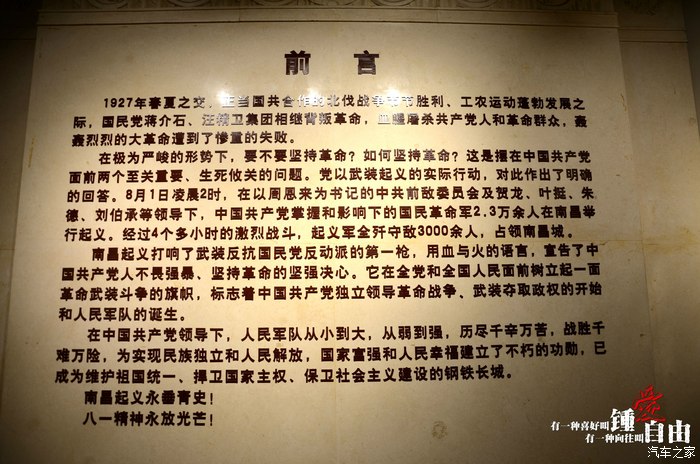 前 言
1927年春夏之交，正当国共合作的北伐战争节节胜利、工农运动蓬勃发展之
际，国民党蒋介石、汪精卫集团相继背叛革命，血腥屠杀共产党人和革命群众，轰
轰烈烈的大革命遭到了惨重的失败。
在极为严峻的形势下，要不要坚持革命？如何坚持革命？这是摆在中国共产党
面前两个至关重要、生死攸关的问题。党以武装起义的实际行动，对此作出了明确
的回答。8月1日凌晨2时，在以周恩来为书记的中共前敌委员会及贺龙、叶挺、朱
德、刘伯承等领导下，中国共产党掌握和影响下的国民革命军2.3万余人在南昌举
行起义。经过4个多小时的激烈战斗，起义军全歼守敌3000余人，占领南昌城。
南昌起义打响了武装反抗国民党反动派的第一枪，用血与火的语言，宣告了中
国共产党人不畏强暴、坚持革命的坚强决心。它在全党和全国人民面前树立起一面
革命武装斗争的旗帜，标志着中国共产党独立领导革命战争、武装夺取政权的开始
和人民军队的诞生。
在中国共产党领导下，人民军队从小到大，从弱到强，历尽千辛万苦，战胜千
难万险，为实现民族独立和人民解放，国家富强和人民幸福建立了不朽的功勋，已
成为维护祖国统一、捍卫国家主权、保卫社会主义建设的钢铁长城。
南昌起义永垂青史！
八一精神永放光芒！
有一种喜好叫锺愛
有一种向往叫自由
汽车之家